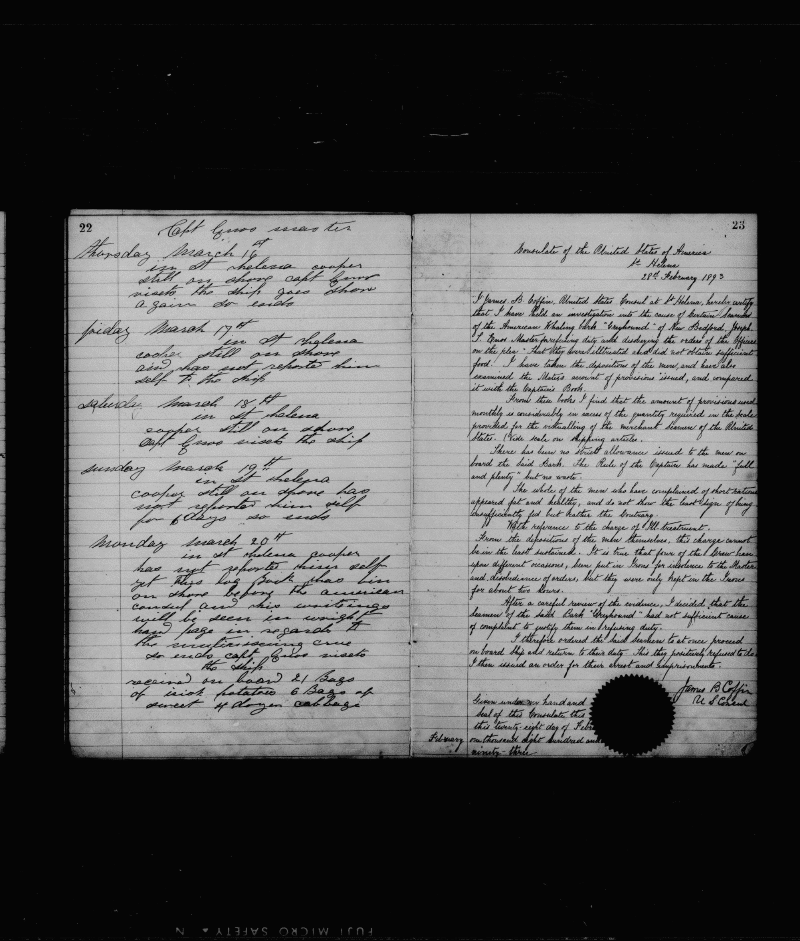 22
Capt Enos master
thursday March 16th
in St thelena cooper
still on shore capt Enos
visets the ship goes shore
again so ends
friday March 17th
in St thelena
cooper still on shore
and has not reported him
self to the ship
saturday March 18th
in St thelena
cooper still on shore
capt Enos visets the ship
sunday march 19th
in St thelena
cooper still on shore has
not reported him self
for 6 days so ends
Monday march 20th
in St thelena cooper
has not reported him self
yet this log Book has bin
on shore before the american
consul and his writings
will be seen in wright
hand page in regards to
the
so ends capt Enos visets
the ship
received on board 21 Bags
of irish potatoes 6 Bags of
sweet 4 dozen cabbage
23
Consulate of the United States of America
St Helena
28th February 1893
I James B Coffin, United States Consul at St Helena, hereby certify
that I have held an investigation into the cause of Certain Seamen
of the American Whaling Bark "Greyhound" of New Bedford, Joseph
T. Enos Master for refusing duty and disobeying the orders of the Officers
on the plea "That they were illtreated and did not obtain sufficient
food". I have taken the depositions of the men, and have also
examined the Mates amount of provisions issued, and compared
it with the Captain's Book.
From these books I find that the amount of provisions used
monthly is considerably in excess of the quantity required in the Scale
provided for the victualling of the merchant Seamen of the United
States. (Vide scale on shipping articles.
There has been no strict allowance issued to the men on
board the said Bark. The Rule of the Captain has made "full
and plenty" but no waste.
The whole of the men who have complained of short rations
appeared fat and healthy, and do not show the least sign of being
insufficiently fed but rather the Contrary.
With reference to the charge of Ill treatment.
From the depositions of the men themselves, this charge cannot
be in the least sustained. It is true that four of the Crew have
upon different occasions, been put in Irons for insolence to the Master
and disobedience of orders, but they were only kept in the Irons
for about two hours.
After a careful review of the evidence, I decided that the
Seamen of the said Bark "Greyhound" had not sufficient cause
of complaint to justify them in refusing duty.
I therefore ordered the said Seamen to at once proceed
on board Ship and return to their duty. This they positively refused to do.
I then issued an order for their arrest and imprisonment.
James B Coffin
U S Consul
Given under my hand and
seal of this Consulate this
this twenty-eight day of Feb
February one thousand eight hundred and
ninety-three
FUJI MICRO SAFETY N